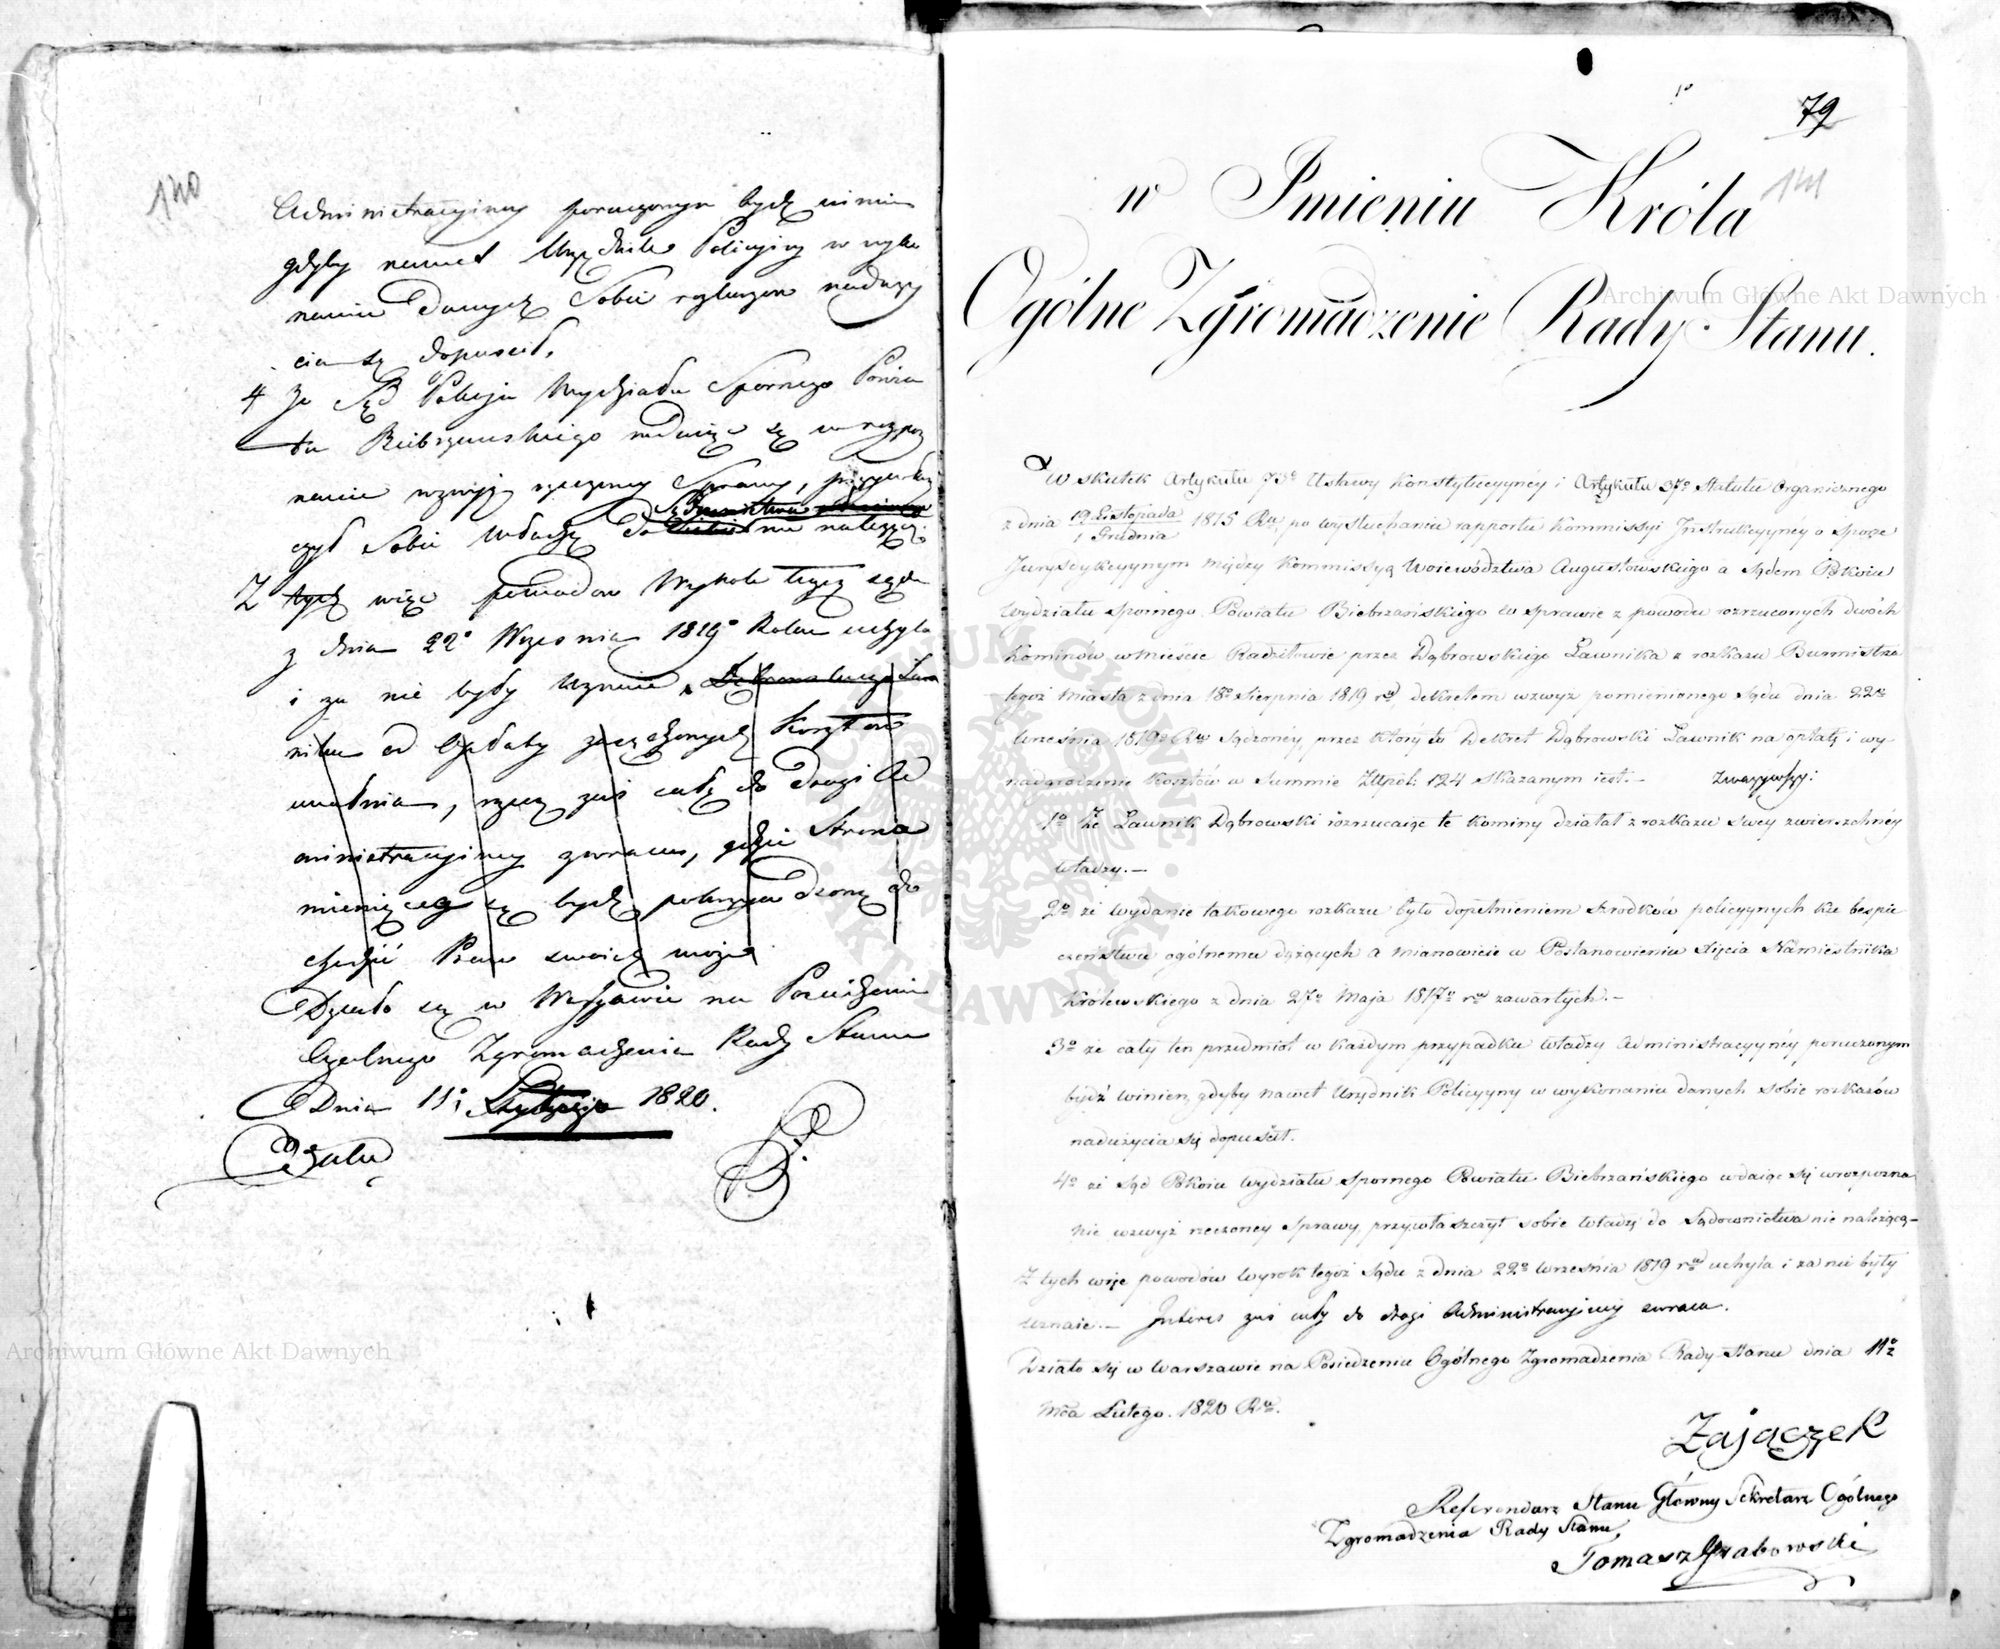 140
Administracyiney poruczonym bydź winien
gdyby nawet Urzędnik Policyiny w wyko
naniu danych Sobie rozkazow naduży
cia się dopuścił,
4 Ze Sąd Pokoju Wydziału Spornego Powia
tu Biebrzanskiego wdaiąc się w rozpoz
nanie wzwyż rzeczoney Sprawy, przywłasz
Sądownictwa
czył Sobie władzę do nie należącą.
Z tych więc powodow Wyrok tegoż sądu
z dnia 22º Września 1819º Roku uchyla
i za nie były uznaie, Dąbrowskiego Ław
nika od Opłaty zasądzonych Kosztow
uwalnia, rzecz zaś całą do Drogi Ad
ministracyiney zwraca, gdzie Strona
mieniąca się bydź pokrzywdzoną do
chodzić Praw swoich może
Działo się w Warszawie na Posiedzeniu
Ogolnego Zgromadzenia Rady Stanu
Dnia 11. 1820.
79
141
w Imieniu Króla
Ogólne Zgromadzenie Rady Stanu.
W skutek Artykułu 73º Ustawy Konstytucyyney i Artykułu 37º Statutu Organicznego
z dnia 19 Listopada / 1 Grudnia 1815 Ru, po wysłuchaniu rapportu Kommissyi Instrukcyyney o sporze
Jurysdykcyynym między Kommissyą Woiewództwa Augustowskiego a Sądem Pokoiu
Wydziału Spornego Powiatu Biebrzańskiego w sprawie z powodu rozrzuconych dwóch
Kominów w mieście Radziłowie przez Dąbrowskiego Ławnika z rozkazu Burmistrza
tegoż Miasta z dnia 18º Sierpnia 1819 r. dekretem wzwyż pomienionego Sądu dnia 22º
Września 1819º Ru sądzoney, przez który to Dekret Dąbrowski Ławnik na opłatę i wy
nadgrodzenie Kosztów w Summie Złłpol: 124 skazanym iest. – Zważywszy:
1º Ze Ławnik Dąbrowski rozrzucaiąc te kominy działał z rozkazu swey zwierzchney
władzy. –
2º że wydanie takowego rozkazu było dopełnieniem środków policyynych ku bespie
czeństwu ogólnemu dążących a mianowicie w Postanowieniu Xięcia Namiestnika
Królewskiego z dnia 27º Maja 1817º ru zawartych. –
3º że cały ten przedmiot w każdym przypadku władzy Administracyyney poruczonym
bydź winien, gdyby nawet Urzędnik Policyyny w wykonaniu danych sobie rozkazów
nadużycia się dopuścił.
4º że Sąd Pokoiu Wydziału Spornego Powiatu Biebrzańskiego wdaiąc się w rozpozna
nie wzwyż rzeczoney Sprawy, przywłaszczył sobie władzę do Sądownictwa nie należącą –
Z tych więc powodów wyrok tegoż Sądu z dnia 22º września 1819 ru uchyla i za nie były
uznaie. – Interes zaś cały do drogi Administracyiney zwraca.
Działo się w Warszawie na Posiedzeniu Ogólnego Zgromadzenia Rady Stanu dnia 11º
Mca Lutego. 1820 Ru.
Zajączek
Referendarz Stanu Główny Sekretarz Ogólnego
Zgromadzenia Rady Stanu,
Tomasz Grabowski
Archiwum Główne Akt Dawnych
Archiwum Główne Akt Dawnych
ARCHIWUM GŁÓWNE AKT DAWNYCH